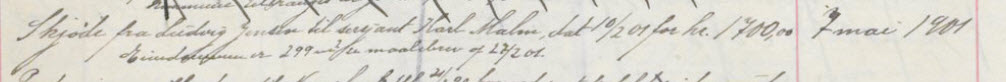 Skjøde fra Ludvig Jensen til serjant Karl Malm, dat 10/2 01 for kr. 1700,00 7 mai 1901
Eiendommen er 299 maalebrev af 27/2 01.